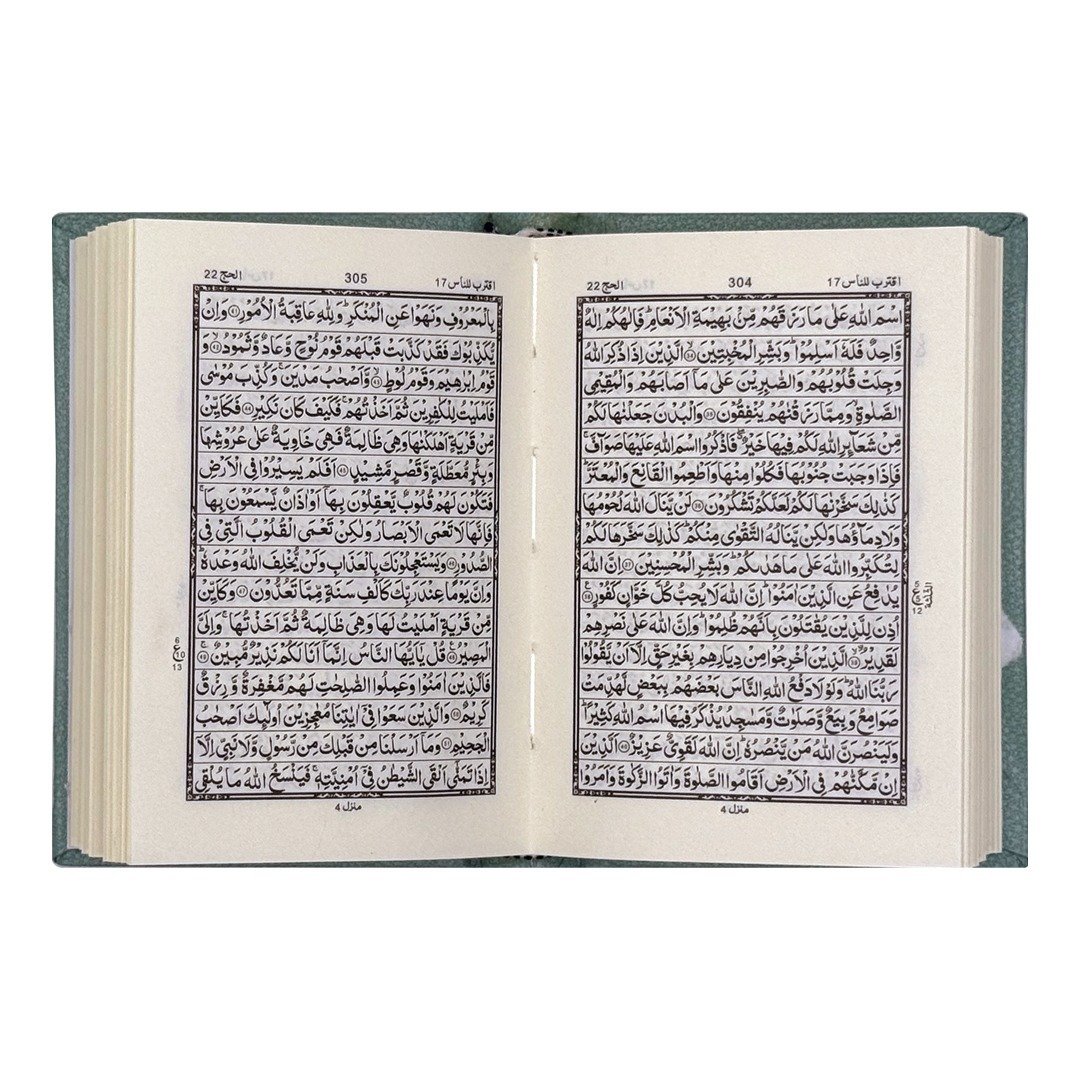 اقترب للناس 17
304
الحج 22
اسْمَ اللّٰهِ عَلٰى مَا رَزَقَهُمْ مِّنْۢ بَهِيْمَةِ الْاَنْعَامِ ؕ فَاِلٰهُكُمْ اِلٰهٌ
وَّاحِدٌ فَلَهٗۤ اَسْلِمُوْا ؕ وَبَشِّرِ الْمُخْبِتِيْنَ ۙ﴿34﴾ الَّذِيْنَ اِذَا ذُكِرَ اللّٰهُ
وَجِلَتْ قُلُوْبُهُمْ وَالصّٰبِرِيْنَ عَلٰى مَاۤ اَصَابَهُمْ وَالْمُقِيْمِى
الصَّلٰوةِ ۙ وَمِمَّا رَزَقْنٰهُمْ يُنْفِقُوْنَ ﴿35﴾ وَالْبُدْنَ جَعَلْنٰهَا لَكُمْ
مِّنْ شَعَآئِرِ اللّٰهِ لَكُمْ فِيْهَا خَيْرٌ ۖ فَاذْكُرُوا اسْمَ اللّٰهِ عَلَيْهَا صَوَآفَّ ۚ
فَاِذَا وَجَبَتْ جُنُوْبُهَا فَكُلُوْا مِنْهَا وَاَطْعِمُوا الْقَانِعَ وَالْمُعْتَرَّ ؕ
كَذٰلِكَ سَخَّرْنٰهَا لَكُمْ لَعَلَّكُمْ تَشْكُرُوْنَ ﴿36﴾ لَنْ يَّنَالَ اللّٰهَ لُحُوْمُهَا
وَلَا دِمَآؤُهَا وَلٰكِنْ يَّنَالُهُ التَّقْوٰى مِنْكُمْ ؕ كَذٰلِكَ سَخَّرَهَا لَكُمْ
لِتُكَبِّرُوا اللّٰهَ عَلٰى مَا هَدٰىكُمْ ؕ وَبَشِّرِ الْمُحْسِنِيْنَ ﴿37﴾ اِنَّ اللّٰهَ
يُدٰفِعُ عَنِ الَّذِيْنَ اٰمَنُوْا ؕ اِنَّ اللّٰهَ لَا يُحِبُّ كُلَّ خَوَّانٍ كَفُوْرٍ ﴿38﴾
اُذِنَ لِلَّذِيْنَ يُقٰتَلُوْنَ بِاَنَّهُمْ ظُلِمُوْا ؕ وَاِنَّ اللّٰهَ عَلٰى نَصْرِهِمْ
لَقَدِيْرُ ۙ﴿39﴾ الَّذِيْنَ اُخْرِجُوْا مِنْ دِيَارِهِمْ بِغَيْرِ حَقٍّ اِلَّاۤ اَنْ يَّقُوْلُوْا
رَبُّنَا اللّٰهُ ؕ وَلَوْلَا دَفْعُ اللّٰهِ النَّاسَ بَعْضَهُمْ بِبَعْضٍ لَّهُدِّمَتْ
صَوَامِعُ وَبِيَعٌ وَّصَلَوٰتٌ وَّمَسٰجِدُ يُذْكَرُ فِيْهَا اسْمُ اللّٰهِ كَثِيْرًا ؕ
وَلَيَنْصُرَنَّ اللّٰهُ مَنْ يَّنْصُرُهٗ ؕ اِنَّ اللّٰهَ لَقَوِىٌّ عَزِيْزٌ ﴿40﴾ الَّذِيْنَ
اِنْ مَّكَّنّٰهُمْ فِى الْاَرْضِ اَقَامُوا الصَّلٰوةَ وَاٰتَوُا الزَّكٰوةَ وَاَمَرُوْا
5
ع
12
منزل 4
اقترب للناس 17
305
الحج 22
بِالْمَعْرُوْفِ وَنَهَوْا عَنِ الْمُنْكَرِ ؕ وَلِلّٰهِ عَاقِبَةُ الْاُمُوْرِ ﴿41﴾ وَاِنْ
يُّكَذِّبُوْكَ فَقَدْ كَذَّبَتْ قَبْلَهُمْ قَوْمُ نُوْحٍ وَّعَادٌ وَّثَمُوْدُ ۙ﴿42﴾ وَ
قَوْمُ اِبْرٰهِيْمَ وَقَوْمُ لُوْطٍ ۙ﴿43﴾ وَّاَصْحٰبُ مَدْيَنَ ۚ وَكُذِّبَ مُوْسٰى
فَاَمْلَيْتُ لِلْكٰفِرِيْنَ ثُمَّ اَخَذْتُهُمْ ۚ فَكَيْفَ كَانَ نَكِيْرِ ﴿44﴾ فَكَاَيِّنْ
مِّنْ قَرْيَةٍ اَهْلَكْنٰهَا وَهِىَ ظَالِمَةٌ فَهِىَ خَاوِيَةٌ عَلٰى عُرُوْشِهَا
وَبِئْرٍ مُّعَطَّلَةٍ وَّقَصْرٍ مَّشِيْدٍ ﴿45﴾ اَفَلَمْ يَسِيْرُوْا فِى الْاَرْضِ
فَتَكُوْنَ لَهُمْ قُلُوْبٌ يَّعْقِلُوْنَ بِهَاۤ اَوْ اٰذَانٌ يَّسْمَعُوْنَ بِهَا ۚ
فَاِنَّهَا لَا تَعْمَى الْاَبْصَارُ وَلٰكِنْ تَعْمَى الْقُلُوْبُ الَّتِىْ فِى
الصُّدُوْرِ ﴿46﴾ وَيَسْتَعْجِلُوْنَكَ بِالْعَذَابِ وَلَنْ يُّخْلِفَ اللّٰهُ وَعْدَهٗ ؕ
وَاِنَّ يَوْمًا عِنْدَ رَبِّكَ كَاَلْفِ سَنَةٍ مِّمَّا تَعُدُّوْنَ ﴿47﴾ وَكَاَيِّنْ
مِّنْ قَرْيَةٍ اَمْلَيْتُ لَهَا وَهِىَ ظَالِمَةٌ ثُمَّ اَخَذْتُهَا ۚ وَاِلَىَّ
الْمَصِيْرُ ﴿48﴾ قُلْ يٰۤاَيُّهَا النَّاسُ اِنَّمَاۤ اَنَا لَكُمْ نَذِيْرٌ مُّبِيْنٌ ۚ﴿49﴾
فَالَّذِيْنَ اٰمَنُوْا وَعَمِلُوا الصّٰلِحٰتِ لَهُمْ مَّغْفِرَةٌ وَّرِزْقٌ
كَرِيْمٌ ﴿50﴾ وَالَّذِيْنَ سَعَوْا فِىْۤ اٰيٰتِنَا مُعٰجِزِيْنَ اُولٰٓئِكَ اَصْحٰبُ
الْجَحِيْمِ ﴿51﴾ وَمَاۤ اَرْسَلْنَا مِنْ قَبْلِكَ مِنْ رَّسُوْلٍ وَّلَا نَبِىٍّ اِلَّاۤ
اِذَا تَمَنّٰىۤ اَلْقَى الشَّيْطٰنُ فِىْۤ اُمْنِيَّتِهٖ ۚ فَيَنْسَخُ اللّٰهُ مَا يُلْقِى
6
ع
10
13
منزل 4